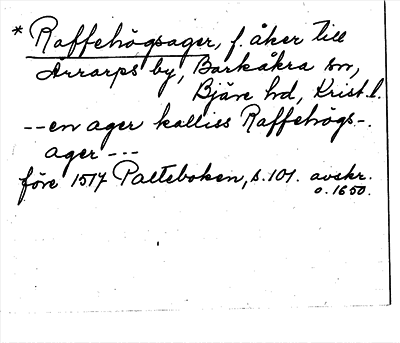 * Raffehögsager, f. åker till
Ärrarps by, Barkåkra sn,
Bjäre hd, Krist. l.
-- en ager kalliss Raffehögs-
ager ---
före 1517 Palteboken, s. 101. avskr.
o. 1650.